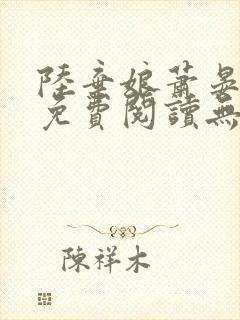 陸棄娘蕭晏
免費閱讀無
陳祥木